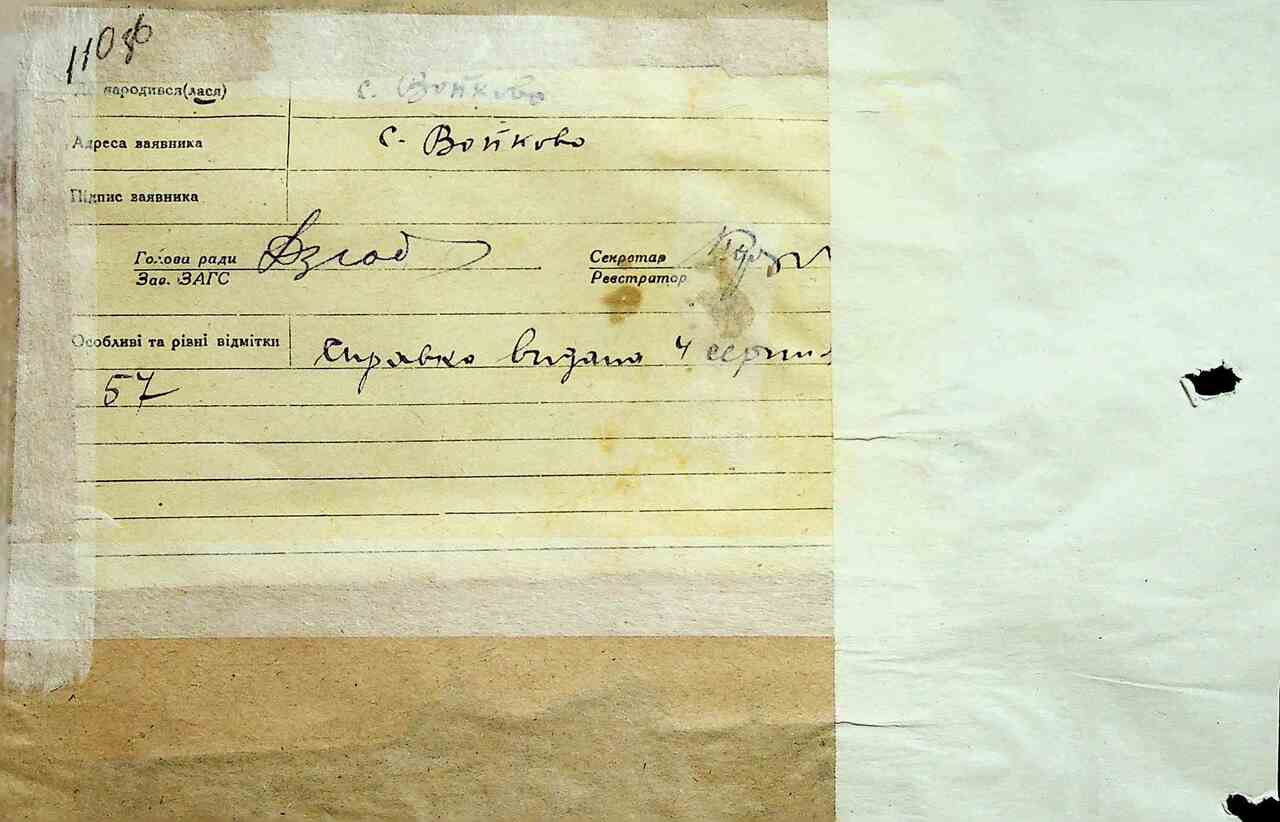 110
народився(лася) с. Войково
Адреса заявника с. Войково
Підпис заявника
Голова ради Секретар
Зав. ЗАГС Реєстратор
Особливі та рівні відмітки Справка видана 4 серпн
57